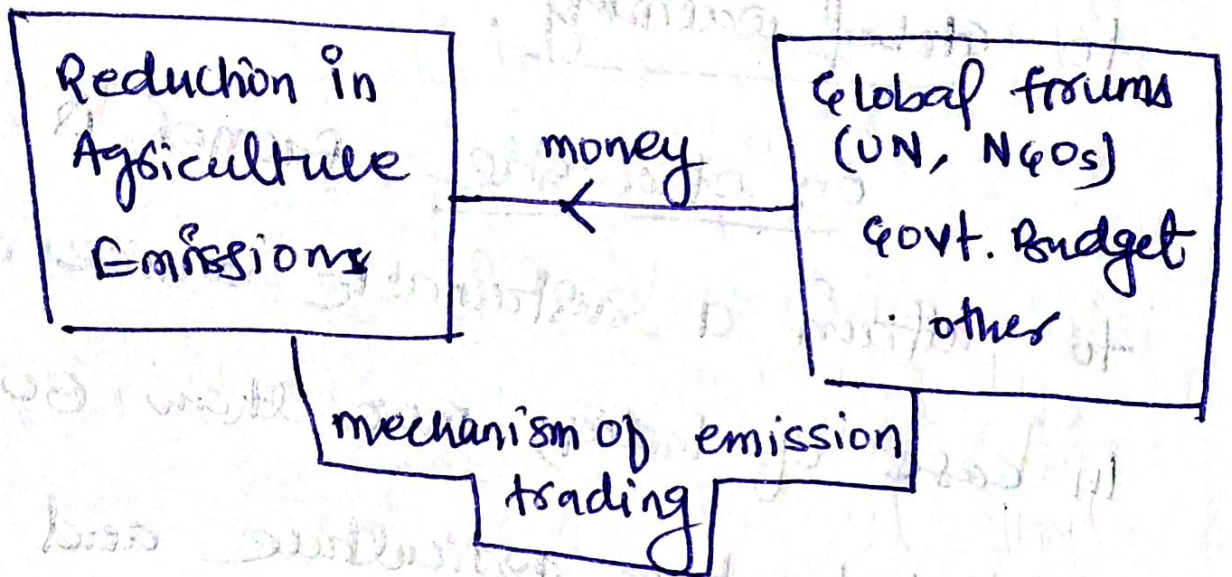 Reduction in
Agriculture
Emissions
money
Global forums
(UN, NGOs)
Govt. Budget
. other
mechanism of emission
trading